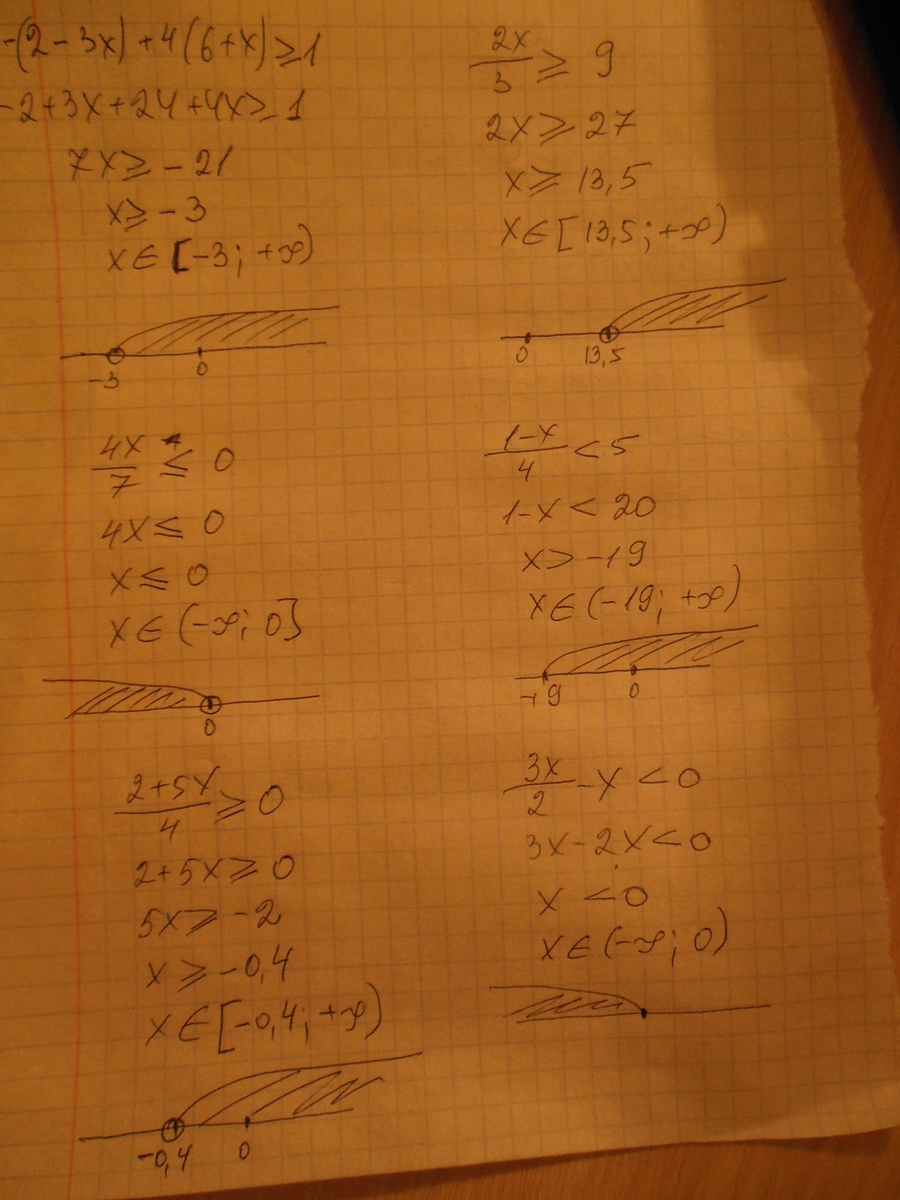 -(2-3x)+4(6+x)≥1
-2+3x+24+4x≥1
7x≥-21
x≥-3
x∈[-3;+∞)
-3 0
2x/3 ≥ 9
2x≥27
x≥13,5
x∈[13,5;+∞)
0 13,5
4x/7 ≤ 0
4x≤0
x≤0
x∈(-∞;0]
0
1-x/4 < 5
1-x<20
x>-19
x∈(-19;+∞)
-19 0
2+5x/4 ≥ 0
2+5x≥0
5x≥-2
x≥-0,4
x∈[-0,4;+∞)
-0,4 0
3x/2 -x<0
3x-2x<0
x<0
x∈(-∞;0)